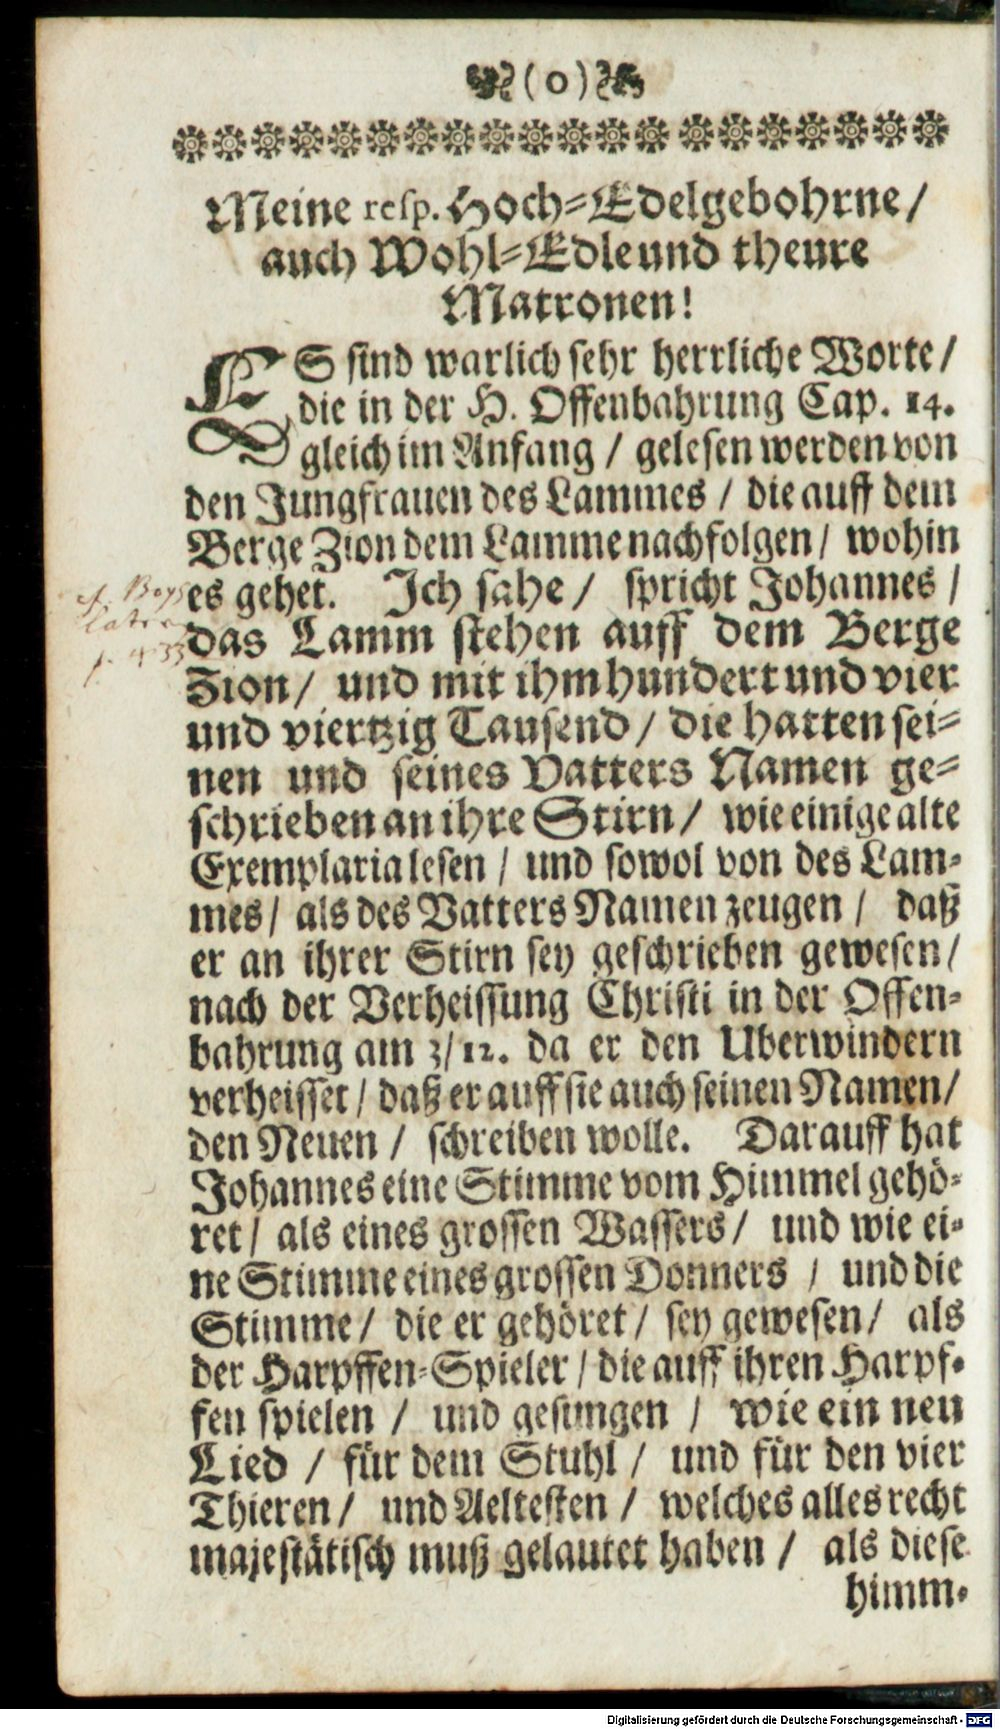 ( o )
Meine resp. Hoch-Edelgebohrne /
auch Wohl-Edle und theure
Matronen!
ES sind warlich sehr herrliche Worte /
die in der H. Offenbahrung Cap. 14.
gleich im Anfang / gelesen werden von
den Jungfrauen des Lammes / die auff dem
Berge Zion dem Lamme nachfolgen / wohin
es gehet. Ich sahe / spricht Johannes /
das Lamm stehen auff dem Berge
Zion / und mit ihm hundert und vier
und viertzig Tausend / die hatten sei-
nen und seines Vatters Namen ge-
schrieben an ihre Stirn / wie einige alte
Exemplaria lesen / und sowol von des Lam-
mes / als des Vatters Namen zeugen / daß
er an ihrer Stirn sey geschrieben gewesen /
nach der Verheissung Christi in der Offen-
bahrung am 3/12. da er den Uberwindern
verheisset / daß er auff sie auch seinen Namen /
den Neuen / schreiben wolle. Darauff hat
Johannes eine Stimme vom Himmel gehö-
ret / als eines grossen Wassers / und wie ei-
ne Stimme eines grossen Donners / und die
Stimme / die er gehöret / sey gewesen / als
der Harpffen-Spieler / die auff ihren Harpf-
fen spielen / und gesungen / wie ein neu
Lied / für dem Stuhl / und für den vier
Thieren / und Aeltesten / welches alles recht
majestätisch muß gelautet haben / als diese
himm-
Digitalisierung gefördert durch die Deutsche Forschungsgemeinschaft - DFG